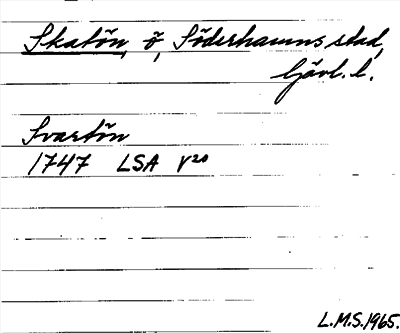 Skatön, ö, Söderhamns stad,
Gävl. l.
Svartön
1747 LSA V²⁰
L.M.S. 1965.